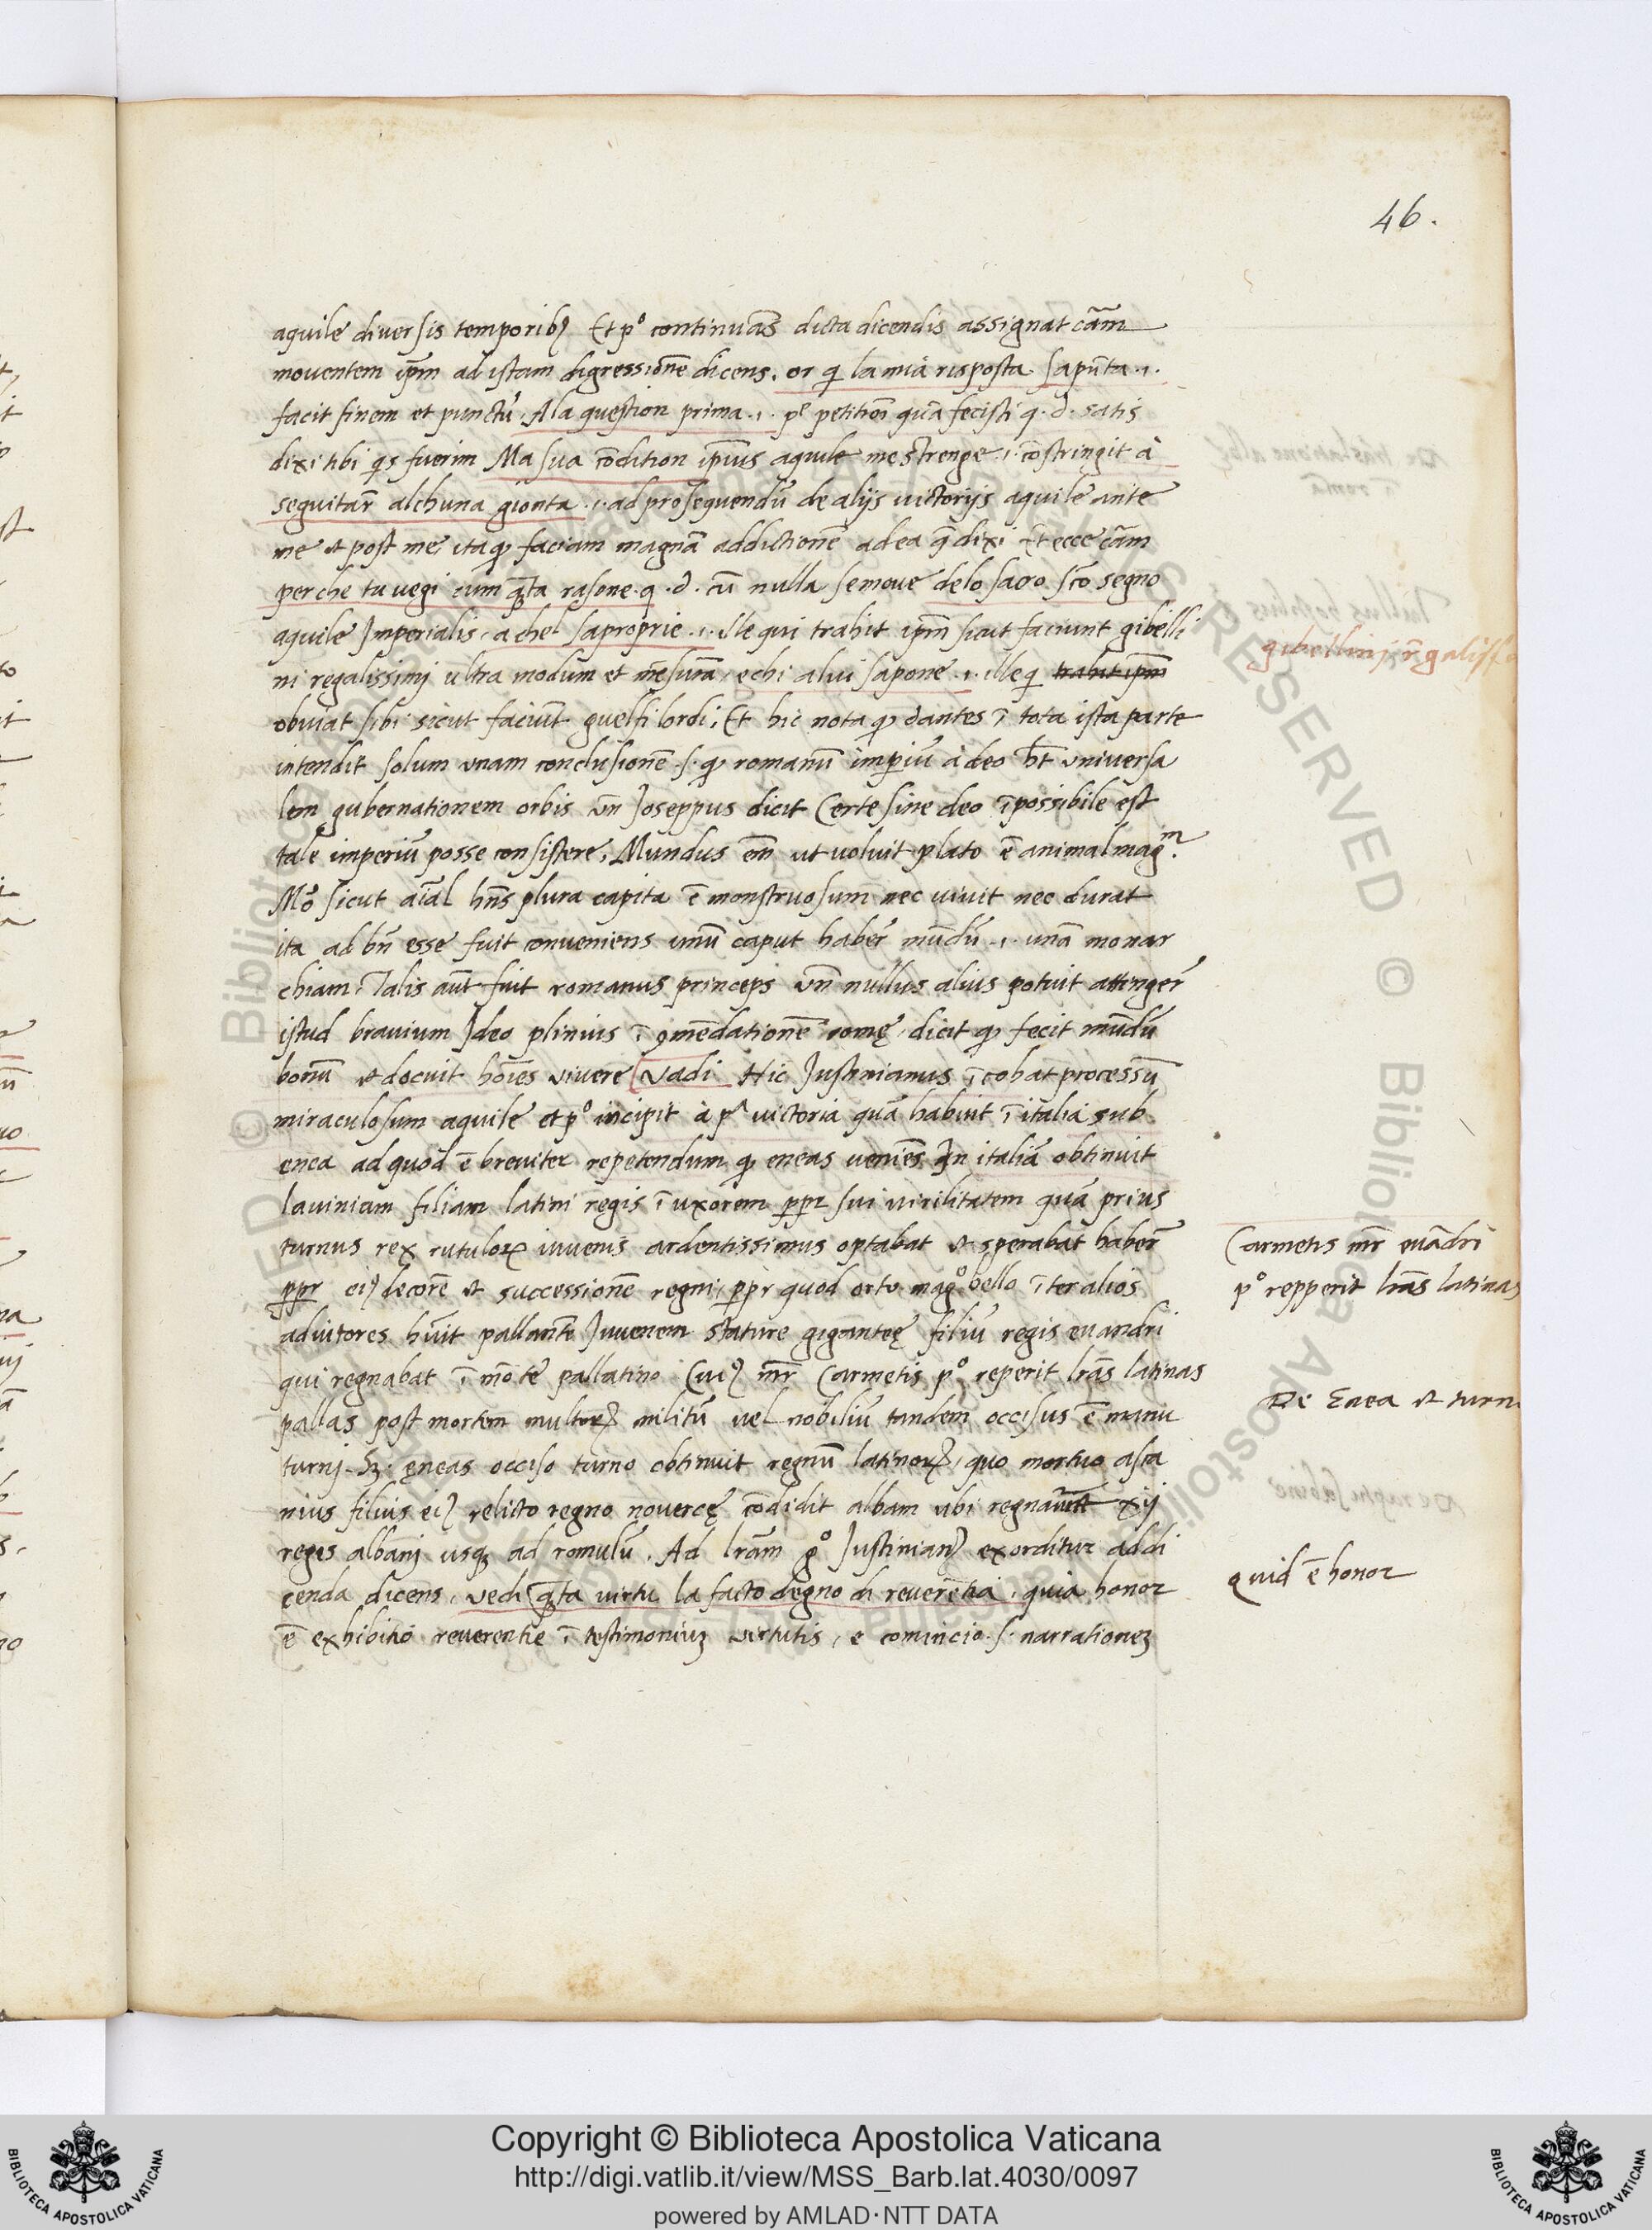 46.
aquile diversis temporibꝰ Et pº continuãs dicta dicendis assignat cãm
mouentem ip̃m ad istam digressionẽ dicens. or qͥ la mia risposta sapũta .i.
facit finem et punctũ. A la question prima .i. pͤ petitiõi quã fecisti q. d. satis
dixi tibi qͥs fuerim Ma sua cõdition ip̃ius aquile me strenge .i. cõstringit à
seguitar̃ alchuna gionta .i. ad prosequendũ de alijs uictorijs aquile ante
me et post me ita ꝙ faciam magnã addictionẽ ad ea q̃ dixi Et ecce cãm
perche tu uegi cum qͣta rasone. q. d. cũ nulla se moue delo sacro sc̃o segno
aquile Jmperialis. a chel sa proprie .i. Ile qui trahit ip̃m sicut faciunt gibelli
ni regalissimj ultra modum et mẽsurã, e chi a lui sapone .i. ille qͥ trahit ip̃m
obuiat sibi sicut faciũt guelfi lordi, Et hic nota ꝙ dantes ĩ tota ista parte
intendit solum vnam conclusionẽ .s. ꝙ romanũ imperiũ à deo h̃t vniuersa
lem gubernationem orbis vñ Joseppus dicit Certe sine deo ĩpossibile est
tale imperiũ posse consistere, Mundus em̃ ut uoluit plato ẽ animal mag.ᵐ
Mõ sicut aĩal hñs plura capita ẽ monstruosum nec uiuit nec durat
ita ad bñ esse fuit conueniens unũ caput haber̃ mũdũ .i. unã monar
chiam. Talis aũt fuit romanus princeps vñ nullus alius potuit attinger̃
istud brauium Jdeo plinius ĩ ꝯmẽdationẽ romę dicit ꝙ fecit mũdũ
bonũ et docuit hoĩes viuere Vadi Hic Justinianus ĩcohat processũ
miraculosum aquile et pº incipit à pͣ uictoria quã habuit ĩ italia sub
enea ad quod ẽ breuiter repetendum ꝙ eneas ueniẽs In italiã obtinuit
lauiniam filiam latini regis ĩ uxorem ꝑpr sui uirilitatem quã prius
turnus rex rutuloꝝ iuuenis ardentissimus optabat et sperabat haber̃
ꝑpr eiꝰ decorẽ et successionẽ regni, ꝑpr quod orto magº bello ĩter alios
adiutores hũit pallantẽ Juuenem stature giganteę filiũ regis euandri
qui regnabat ĩ mõte pallatino Cuiꝰ mr̃ Carmetis pº reperit lrãs latinas
pallas post mortem multoꝝ militũ uel nobiliũ tandem occisus ẽ manu
turnj. Sꝫ. eneas occiso turno obtinuit regnũ latinoꝝ, quo mortuo asca
nius filius eiꝰ relicto regno nouercę cõdidit albam ubi regnauũt xij
reges albani usqꝫ ad romulũ. Ad lrãm gº Justinianꝰ exorditur addi
cenda dicens, vedi qͣta virtu la facto degno di reuerẽtia. quia honor
ẽ exhibitio reuerentie ĩ testimoniuꝫ virtutis, e comincio .s. narrationeꝫ
gibellinj r̃galiss
Carmetis mr̃ euãdri
pº repperit lrãs latinas
De Enea et turn
quid ẽ honor
Copyright © Biblioteca Apostolica Vaticana
http://digi.vatlib.it/view/MSS_Barb.lat.4030/0097
powered by AMLAD·NTT DATA
BIBLIOTECA APOSTOLICA VATICANA
BIBLIOTECA APOSTOLICA VATICANA